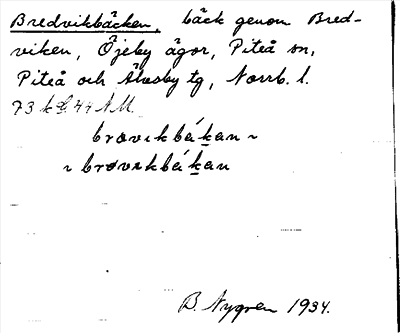 Bredvikbäcken, bäck genom Bred-
viken, Öjeby ägor, Piteå sn,
Piteå och Älvsby tg, Norrb. l.
73 k G. 44 A.M.
brøvɩkbákan ~
~ brøvɩkbákan
B. Nygren 1934.